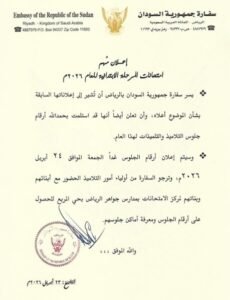 Embassy of the Republic of the Sudan
Riyadh - Kingdom of Saudi Arabia
سفارة جمهورية السودان
الرياض - المملكة العربية السعودية
إعلان مهم
امتحانات المرحلة الابتدائية للعام ٢٠٢٦م
يسر سفارة جمهورية السودان بالرياض أن تُشير إلى إعلاناتها السابقة
بشأن الموضوع أعلاه، وأن تعلن أيضاً أنها قد استلمت بحمدالله أرقام
جلوس التلاميذ والتلميذات لهذا العام.
وسيتم إعلان أرقام الجلوس غداً الجمعة الموافق ٢٤ أبريل
٢٠٢٦م، وترجو السفارة من أولياء أمور التلاميذ الحضور مع أبنائهم
وبناتهم لمركز الامتحانات بمدارس جواهر الرياض بحي المربع للحصول
على أرقام الجلوس ومعرفة أماكن جلوسهم.
والله الموفق ،،،
التاريخ: ٢٣ أبريل ٢٠٢٦م